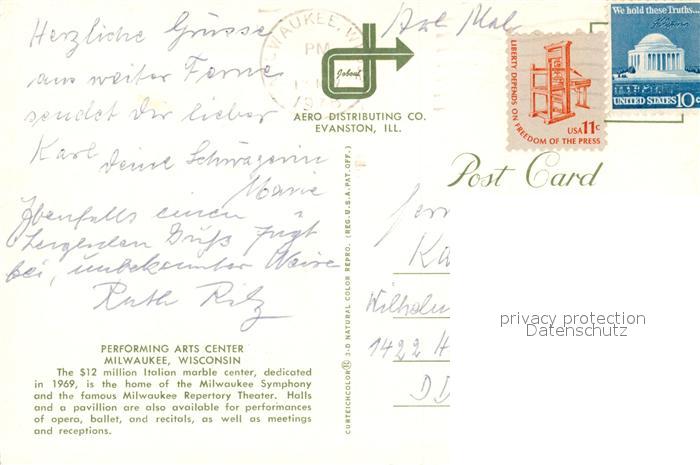 Herzliche Grüsse
aus weiter Ferne
sendet Dir lieber
Karl Deine Schwägerin
Marie
Ebenfalls einen
herzlichen Gruß fügt
bei, unbekannter Weise
Ruth Ritz
PERFORMING ARTS CENTER
MILWAUKEE, WISCONSIN
The $12 million Italian marble center, dedicated
in 1969, is the home of the Milwaukee Symphony
and the famous Milwaukee Repertory Theater. Halls
and a pavillion are also available for performances
of opera, ballet, and recitals, as well as meetings
and receptions.
MILWAUKEE, WI
PM
AERO DISTRIBUTING CO.
EVANSTON, ILL.
CURTEICHCOLOR® 3-D NATURAL COLOR REPRO. (REG. U.S.A. PAT. OFF.)
LIBERTY DEPENDS ON FREEDOM OF THE PRESS
USA 11c
We hold these Truths...
UNITED STATES 10c
Post Card
Wilhelm
1422 H
DD
privacy protection
Datenschutz